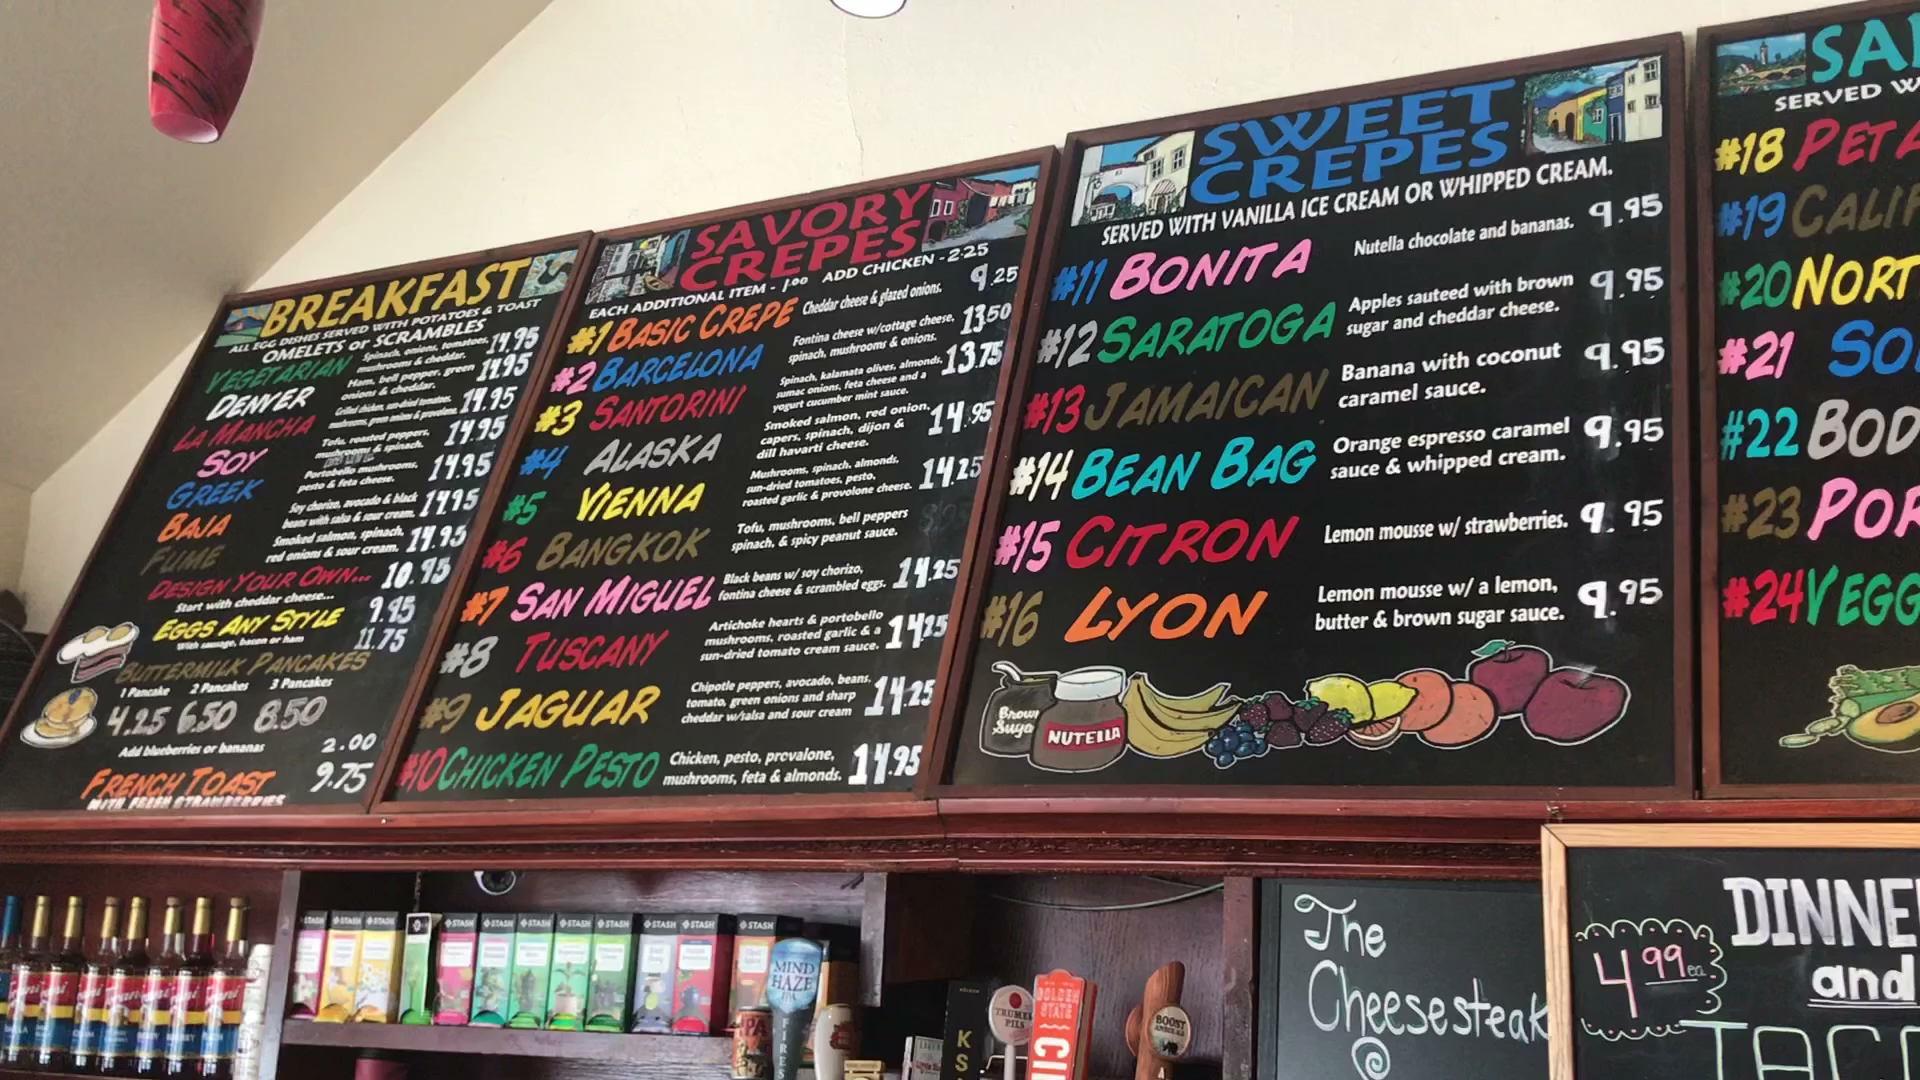 BREAKFAST
ALL EGG DISHES SERVED WITH POTATOES & TOAST
OMELETS or SCRAMBLES
VEGETARIAN Spinach, onions, tomatoes, mushrooms & cheddar. 14.95
DENVER Ham, bell pepper, green onions & cheddar. 14.95
LA MANCHA Grilled chicken, sun-dried tomatoes, mushrooms, green onions & provolone. 14.95
SOY Tofu, roasted peppers, mushrooms & spinach. 14.95
GREEK Portobello mushrooms, pesto & feta cheese. 14.95
BAJA Soy chorizo, avocado & black beans with salsa & sour cream. 14.95
FUME Smoked salmon, spinach, red onions & sour cream. 14.95
DESIGN YOUR OWN... 10.95
Start with cheddar cheese...
EGGS ANY STYLE 9.95
With sausage, bacon or ham 11.75
BUTTERMILK PANCAKES
1 Pancake 2 Pancakes 3 Pancakes
4.25 6.50 8.50
Add blueberries or bananas 2.00
FRENCH TOAST 9.75
WITH FRESH STRAWBERRIES
SAVORY
CREPES
EACH ADDITIONAL ITEM - 1.00 ADD CHICKEN - 2.25
#1 BASIC CREPE Cheddar cheese & glazed onions. 9.25
#2 BARCELONA Fontina cheese w/cottage cheese, spinach, mushrooms & onions. 13.50
#3 SANTORINI Spinach, kalamata olives, almonds, sumac onions, feta cheese and a yogurt cucumber mint sauce. 13.75
#4 ALASKA Smoked salmon, red onion, capers, spinach, dijon & dill havarti cheese. 14.95
#5 VIENNA Mushrooms, spinach, almonds, sun-dried tomatoes, pesto, roasted garlic & provolone cheese. 14.25
#6 BANGKOK Tofu, mushrooms, bell peppers spinach, & spicy peanut sauce.
#7 SAN MIGUEL Black beans w/ soy chorizo, fontina cheese & scrambled eggs. 14.25
#8 TUSCANY Artichoke hearts & portobello mushrooms, roasted garlic & a sun-dried tomato cream sauce. 14.25
#9 JAGUAR Chipotle peppers, avocado, beans, tomato, green onions and sharp cheddar w/salsa and sour cream 14.25
#10 CHICKEN PESTO Chicken, pesto, prvalone, mushrooms, feta & almonds. 14.95
SWEET
CREPES
SERVED WITH VANILLA ICE CREAM OR WHIPPED CREAM.
#11 BONITA Nutella chocolate and bananas. 9.95
#12 SARATOGA Apples sauteed with brown sugar and cheddar cheese. 9.95
#13 JAMAICAN Banana with coconut caramel sauce. 9.95
#14 BEAN BAG Orange espresso caramel sauce & whipped cream. 9.95
#15 CITRON Lemon mousse w/ strawberries. 9.95
#16 LYON Lemon mousse w/ a lemon, butter & brown sugar sauce. 9.95
Brown
Sugar
NUTELLA
SERVED W
#18 PETA
#19 CALIF
#20 NORT
#21 SO
#22 BOD
#23 POR
#24 VEGG
STASH STASH STASH STASH STASH STASH STASH STASH
MIND
HAZE
IPA
FIRES
TRUMER
PILS
GOLDEN
STATE
CI
BOOST
The
Cheesesteak
DINNE
and
TAC
4.99 ea